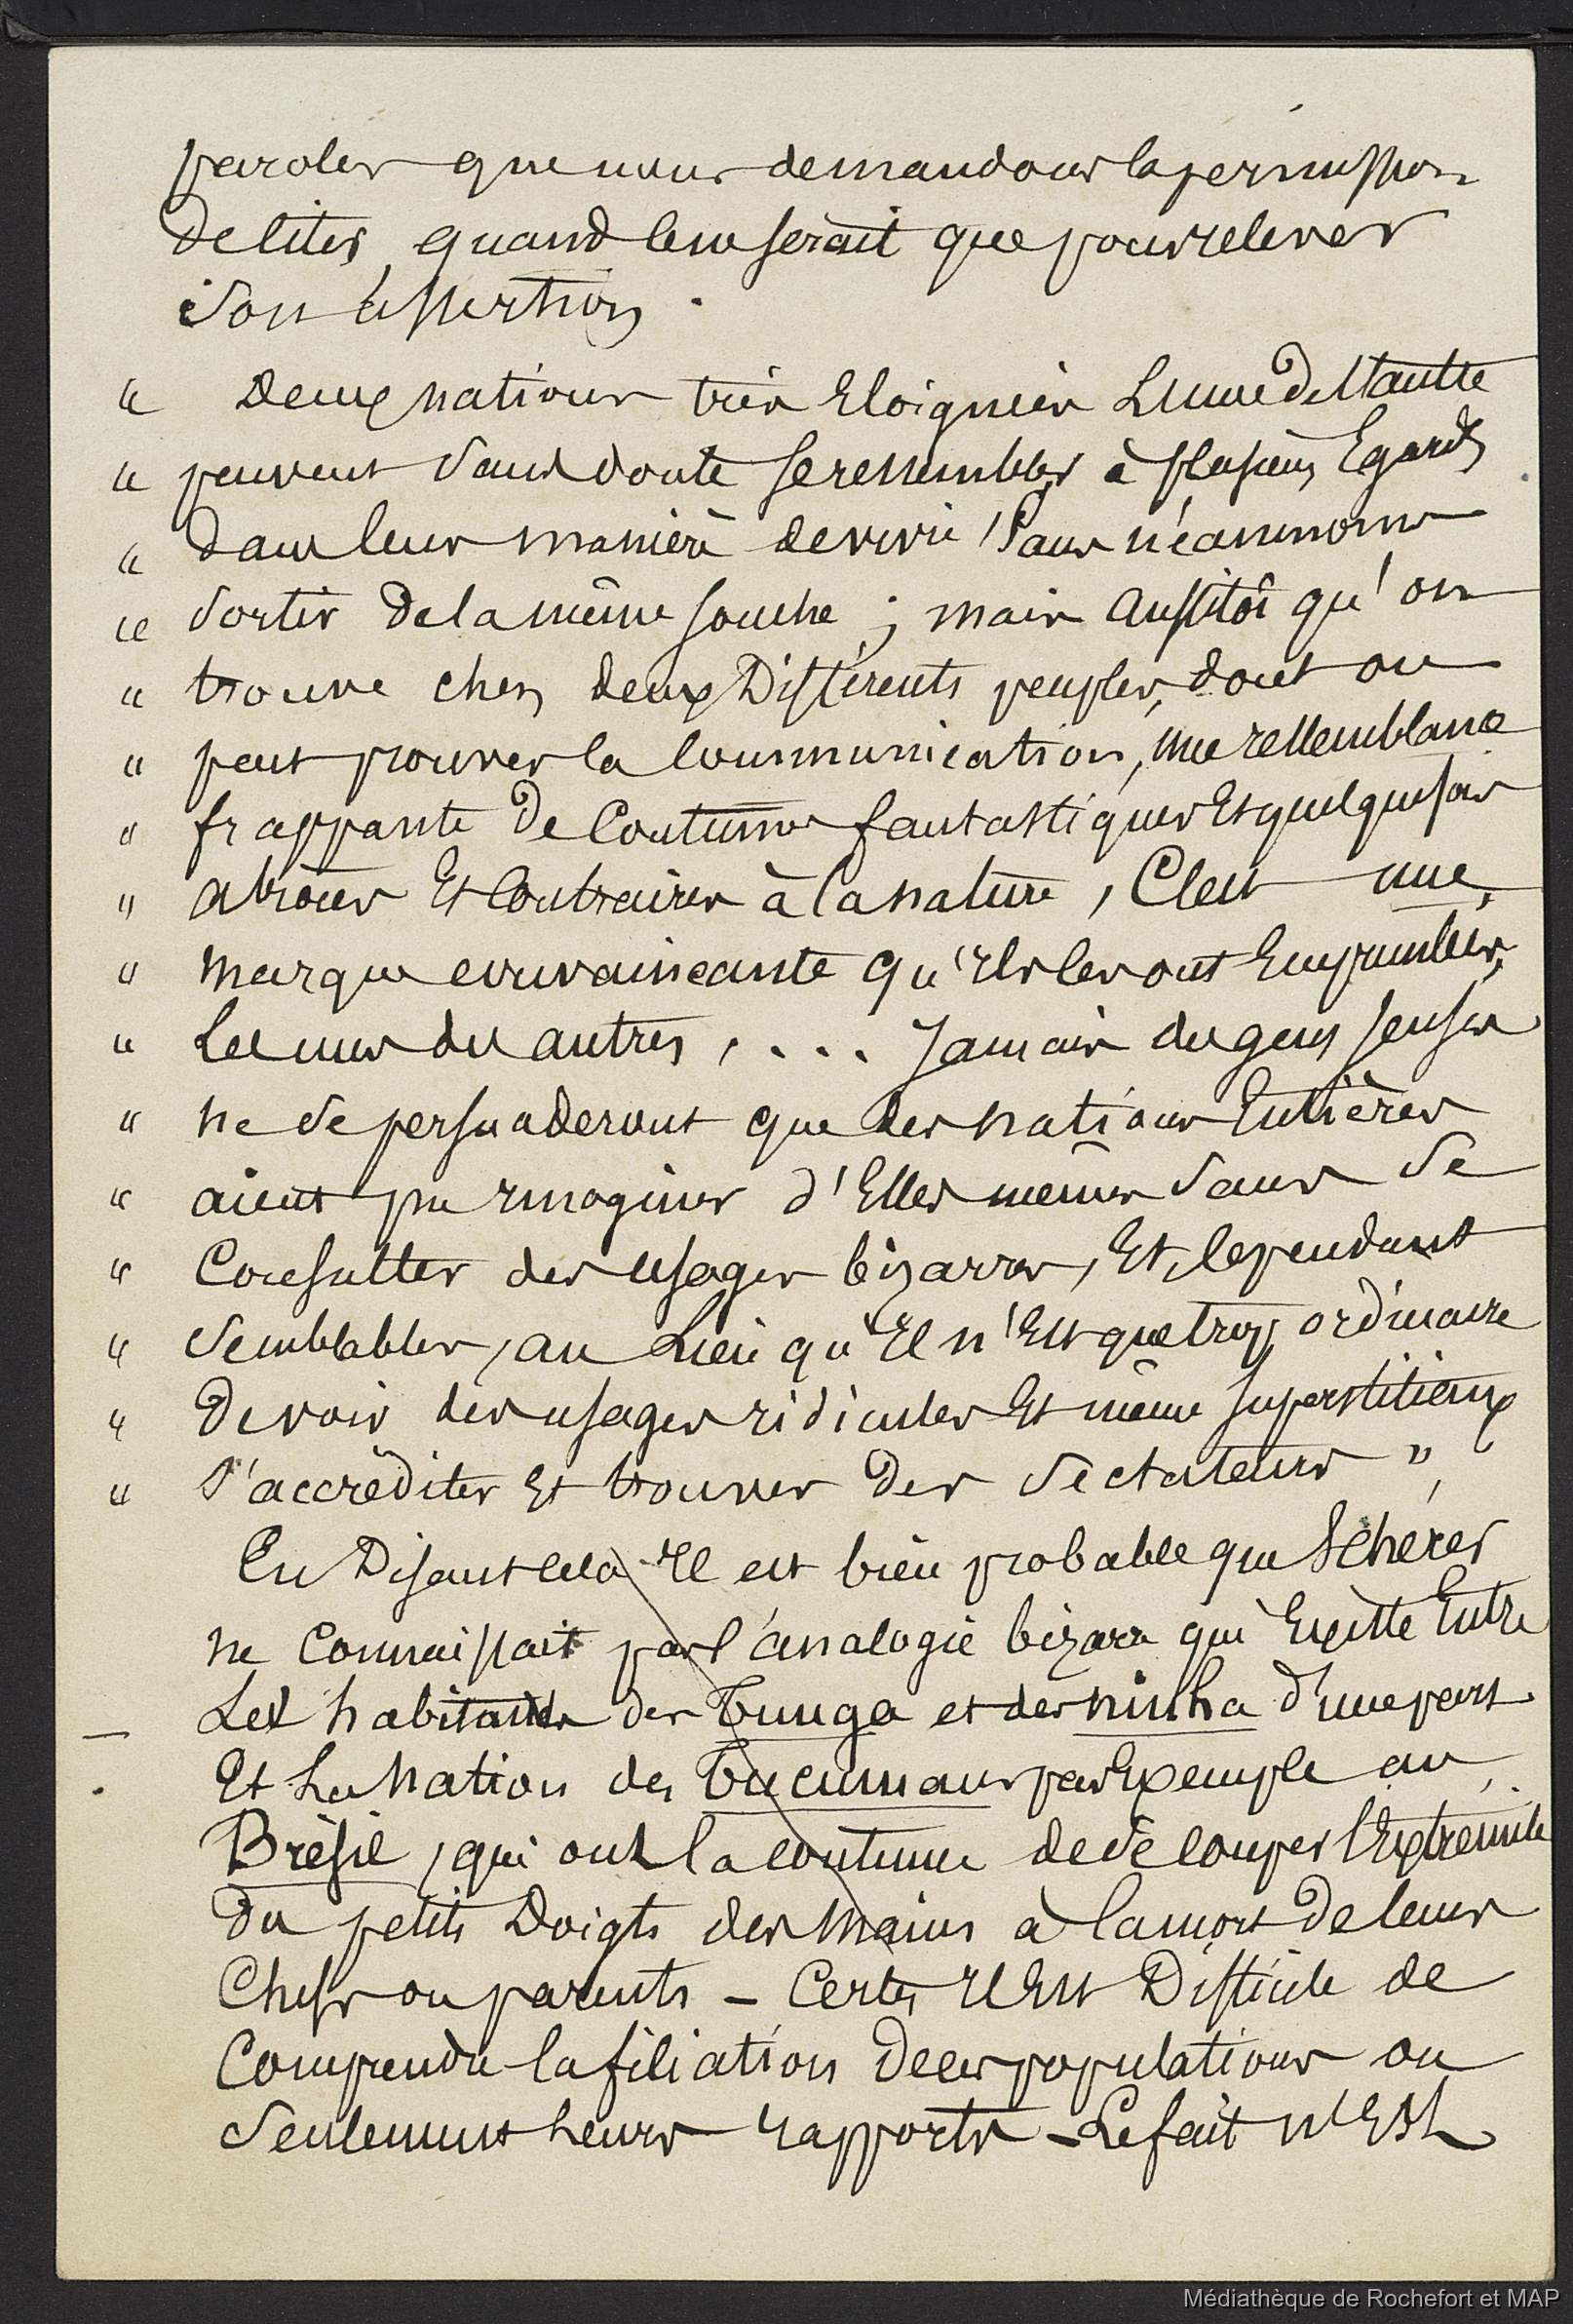 paroles que nous demandons la permission
de citer, quand ce ne serait que pour relever
son assertion.
" Deux nations très Eloignées L'une de l'autre
" peuvent sans doute se ressembler à plusieurs Egards
" dans leur manière de vivre sans néanmoins
" sortir de la même souche ; mais aussitôt qu'on
" trouve chez deux Différents peuples, dont on
" peut prouver la Communication, une ressemblance
" frappante de Coutumes fantastiques Et quelquefois
" atroces Et Contraires à la nature, C'est une
" marque convaincante qu'Ils les ont Empruntées,
" Les uns des autres, . . . Jamais des gens sensés
" ne se persuaderont que des nations Entières
" aient pu imaginer d'Elles mêmes sans se
" Consulter des usages bizarres, Et cependant
" semblables, au Lieu qu'Il n'Est que trop ordinaire
" De voir des usages ridicules Et même superstitieux
" s'accréditer Et trouver des sectateurs ",
En Disant cela Il est bien probable que Schérer
ne Connaissait pas l'analogie bizarre qui Existe Entre
Les habitants des Tunga et des ninha d'une part
Et La Nation des Tucumans par Exemple au
Brésil, qui ont la coutume de se couper l'Extremité
des petits Doigts des Mains à la mort de leurs
Chefs ou parents – Certes Il Est Difficile de
Comprendre la filiation de ces populations ou
seulement Leurs rapports – Le fait n'Est
Médiathèque de Rochefort et MAP